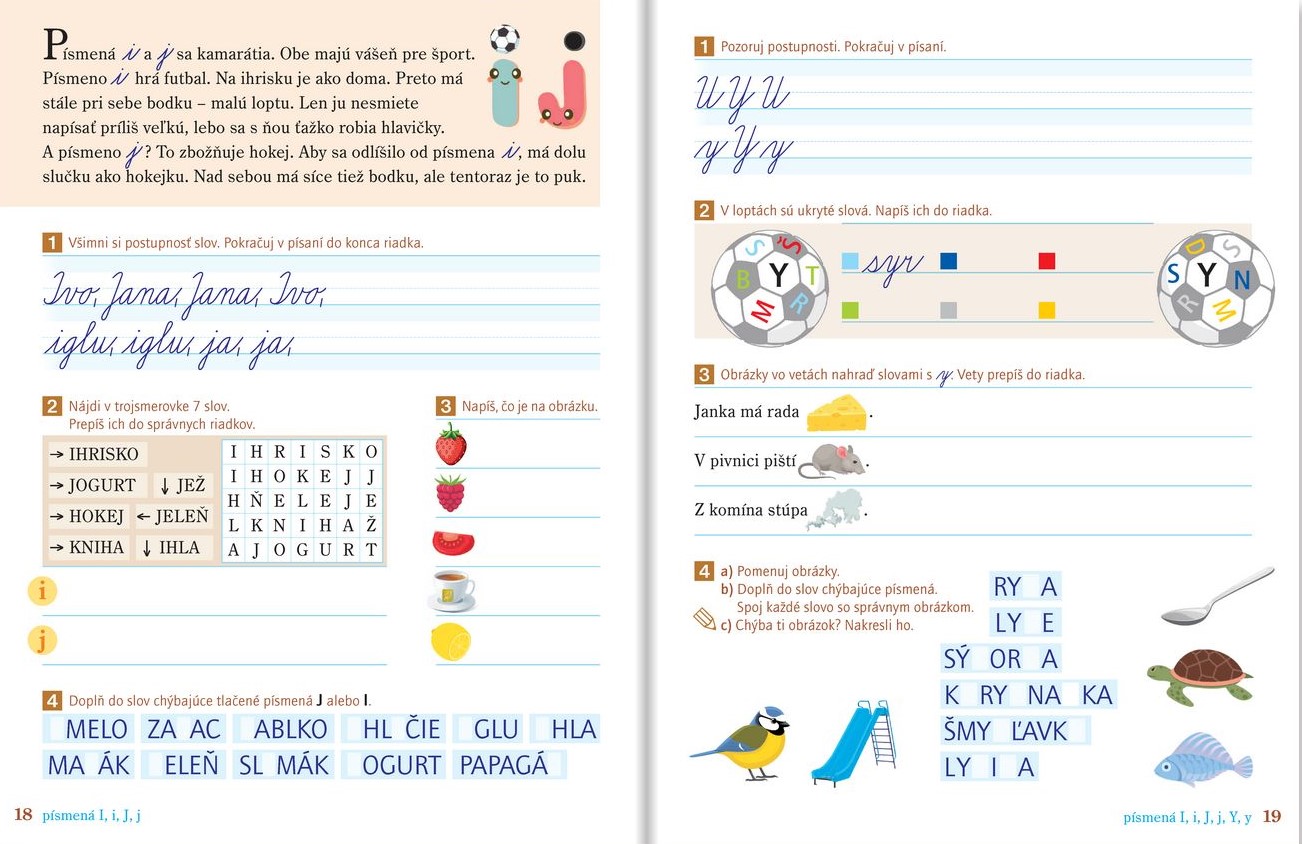 Písmená i a j sa kamarátia. Obe majú vášeň pre šport.
Písmeno i hrá futbal. Na ihrisku je ako doma. Preto má
stále pri sebe bodku – malú loptu. Len ju nesmiete
napísať príliš veľkú, lebo sa s ňou ťažko robia hlavičky.
A písmeno j? To zbožňuje hokej. Aby sa odlíšilo od písmena i, má dolu
slučku ako hokejku. Nad sebou má síce tiež bodku, ale tentoraz je to puk.
i J
1 Všimni si postupnosť slov. Pokračuj v písaní do konca riadka.
Ivo, Jana, Jana, Ivo,
iglu, iglu, ja, ja,
2 Nájdi v trojsmerovke 7 slov.
Prepíš ich do správnych riadkov.
→ IHRISKO
→ JOGURT ↓ JEŽ
→ HOKEJ ← JELEŇ
→ KNIHA ↓ IHLA
I H R I S K O
I H O K E J J
H Ň E L E J E
L K N I H A Ž
A J O G U R T
i
j
3 Napíš, čo je na obrázku.
4 Doplň do slov chýbajúce tlačené písmená J alebo I.
MELO ZA AC ABLKO HL ČIE GLU HLA
MA ÁK ELEŇ SL MÁK OGURT PAPAGÁ
18 písmená I, i, J, j
1 Pozoruj postupnosti. Pokračuj v písaní.
U Y U
y Y y
2 V loptách sú ukryté slová. Napíš ich do riadka.
S Š B Y T M R
syr
D S S Y N R M
3 Obrázky vo vetách nahraď slovami s y. Vety prepíš do riadka.
Janka má rada .
V pivnici piští .
Z komína stúpa .
4 a) Pomenuj obrázky.
b) Doplň do slov chýbajúce písmená.
Spoj každé slovo so správnym obrázkom.
c) Chýba ti obrázok? Nakresli ho.
RY A
LY E
SÝ OR A
K RY NA KA
ŠMY ĽAVK
LY I A
písmená I, i, J, j, Y, y 19